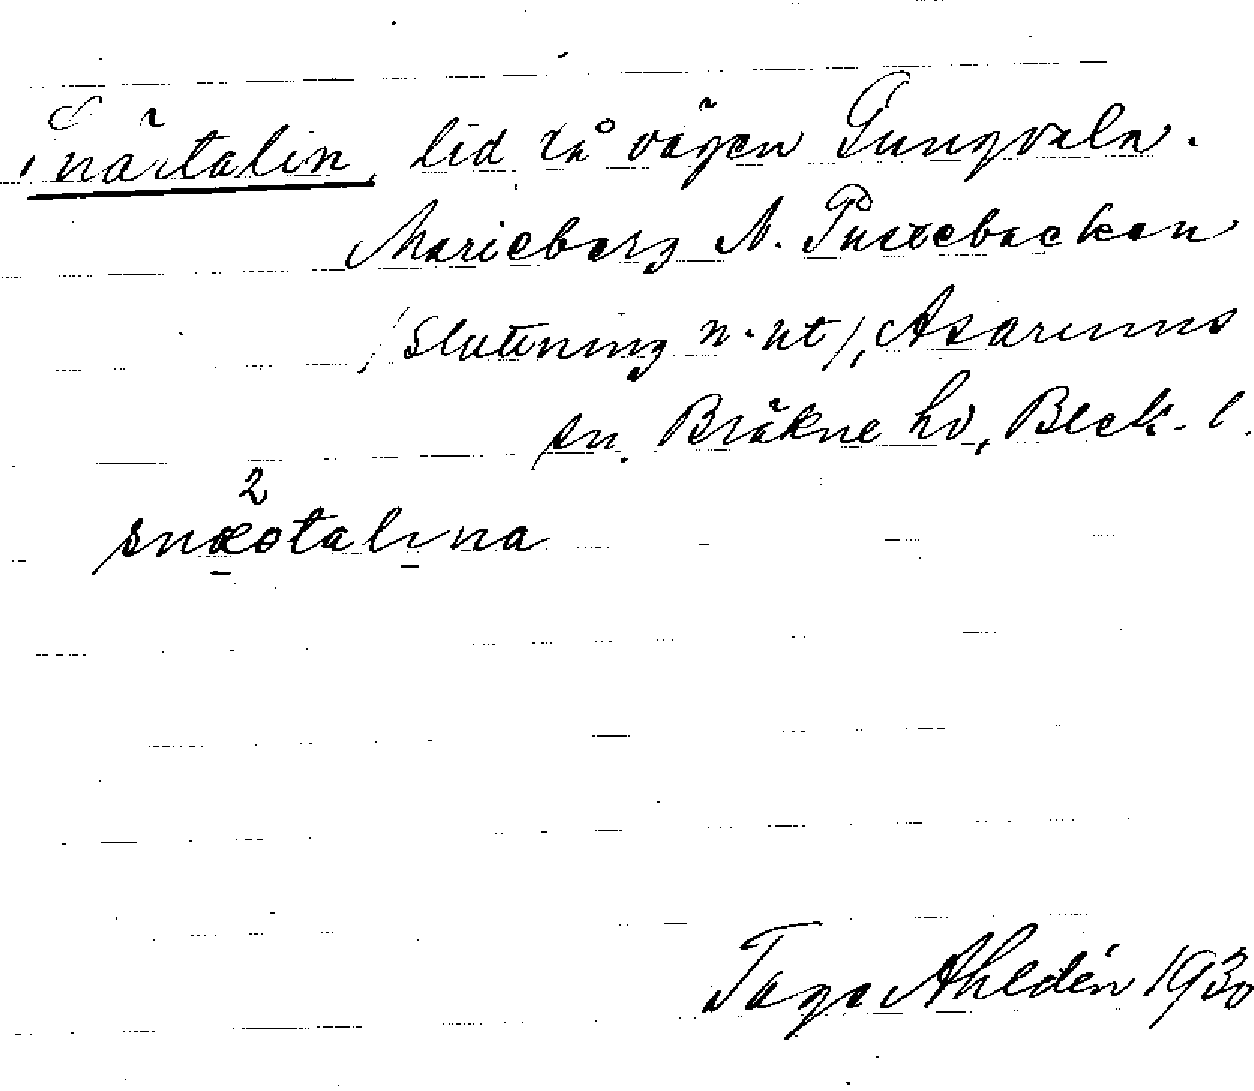 Snärtalin, lid på vägen Gungvala.
Marieberg N. Pussebacken
(Sluttning n. ut), Asarums
sn. Bräkne hd, Bleck. l.
2
snæotalina
Tage Ahldén 1930